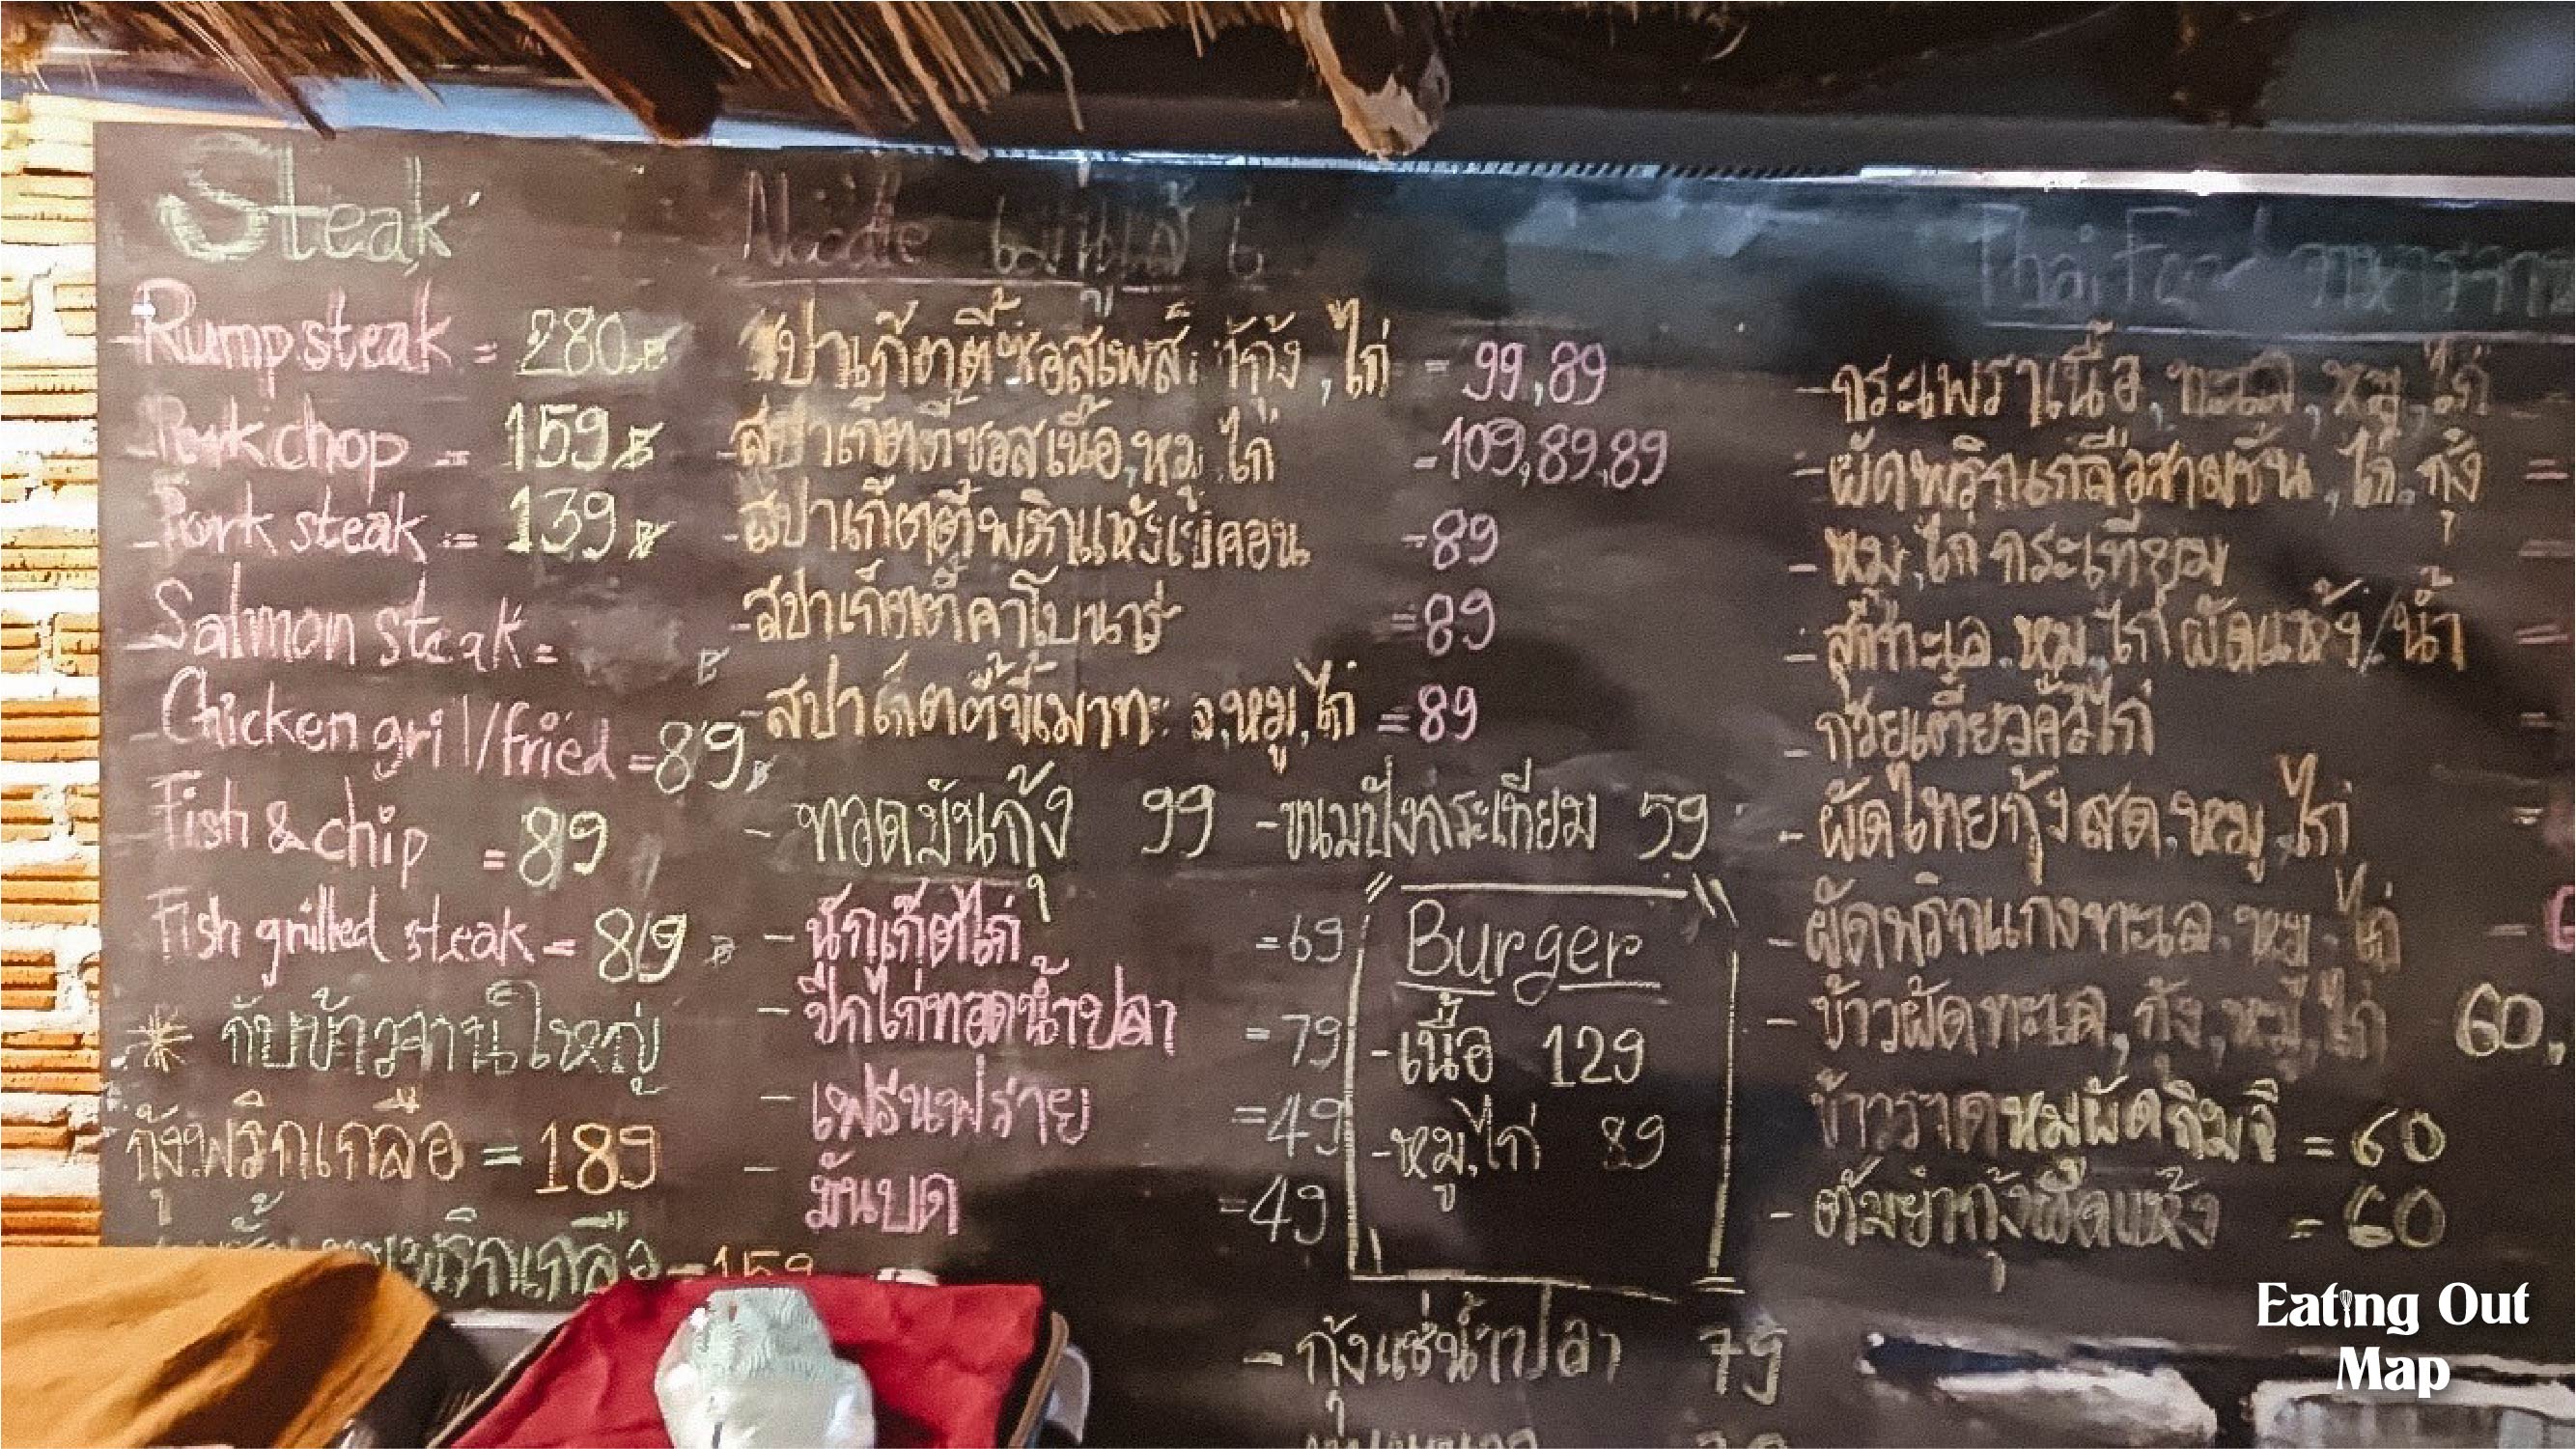 Steak
-Rump steak = 280.-
-Pork chop = 159
-Pork steak = 139
-Salmon steak =
-Chicken grill/fried = 89
-Fish & chip = 89
Fish grilled steak = 89
กับข้าวจานใหญ่
กุ้งพริกเกลือ = 189
พริกเกลือ - 159
Noodle เมนูเส้น
สปาเก็ตตี้ซอสเพส กุ้ง, ไก่ - 99,89
-สปาเก็ตตี้ซอสเนื้อ,หมู,ไก่ -109,89,89
-สปาเก็ตตี้พริกแห้งเบคอน -89
-สปาเก็ตตี้คาโบนาร่า =89
-สปาเก็ตตี้ขี้เมาทะเล,หมู,ไก่ =89
- ทอดมันกุ้ง 99
-ขนมปังกระเทียม 59
- นักเก็ตไก่ =69
- ปีกไก่ทอดน้ำปลา =79
- เฟรนฟราย =49
- มันบด =49
Burger
-เนื้อ 129
-หมู,ไก่ 89
- กุ้งแช่น้ำปลา 79
Thai Food
-กระเพราเนื้อ,ทะเล,หมู,ไก่ =
-ผัดพริกเกลือสามชั้น,ไก่,กุ้ง =
- หมู,ไก่ กระเทียม =
- สุกี้ทะเล,หมู,ไก่ ผัดแห้ง/น้ำ =
- ก๋วยเตี๋ยวคั่วไก่ =
- ผัดไทยกุ้งสด,หมู,ไก่ =
- ผัดพริกแกงทะเล,หมู,ไก่ =
- ข้าวผัดทะเล,กุ้ง,หมู,ไก่ 60,
ข้าวราดหมูผัดกิมจิ = 60
- ต้มยำกุ้งผัดแห้ง = 60
Eating Out
Map